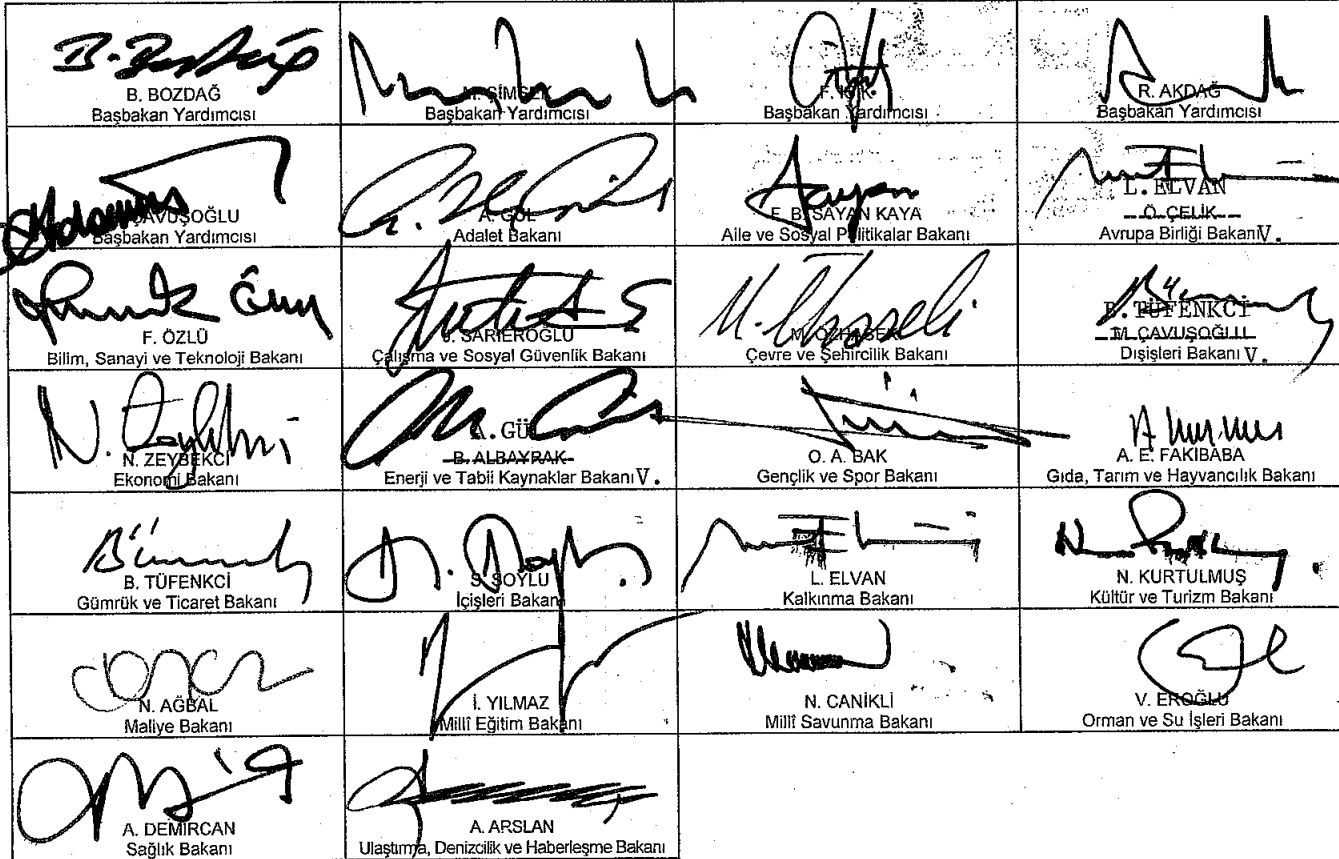 B. BOZDAĞ
Başbakan Yardımcısı
ŞİMŞEK
Başbakan Yardımcısı
Başbakan Yardımcısı
R. AKDAĞ
Başbakan Yardımcısı
ÇAVUŞOĞLU
Başbakan Yardımcısı
A. GÜL
Adalet Bakanı
F. B. SAYAN KAYA
Aile ve Sosyal Politikalar Bakanı
L. ELVAN
Ö. ÇELİK
Avrupa Birliği Bakanı V.
F. ÖZLÜ
Bilim, Sanayi ve Teknoloji Bakanı
J. SARIEROĞLU
Çalışma ve Sosyal Güvenlik Bakanı
M. ÖZHASEKİ
Çevre ve Şehircilik Bakanı
B. TÜFENKCİ
M. ÇAVUŞOĞLU
Dışişleri Bakanı V.
N. ZEYBEKCİ
Ekonomi Bakanı
A. GÜL
B. ALBAYRAK
Enerji ve Tabii Kaynaklar Bakanı V.
O. A. BAK
Gençlik ve Spor Bakanı
A. E. FAKIBABA
Gıda, Tarım ve Hayvancılık Bakanı
B. TÜFENKCİ
Gümrük ve Ticaret Bakanı
S. SOYLU
İçişleri Bakanı
L. ELVAN
Kalkınma Bakanı
N. KURTULMUŞ
Kültür ve Turizm Bakanı
N. AĞBAL
Maliye Bakanı
İ. YILMAZ
Millî Eğitim Bakanı
N. CANİKLİ
Millî Savunma Bakanı
V. EROĞLU
Orman ve Su İşleri Bakanı
A. DEMİRCAN
Sağlık Bakanı
A. ARSLAN
Ulaştırma, Denizcilik ve Haberleşme Bakanı